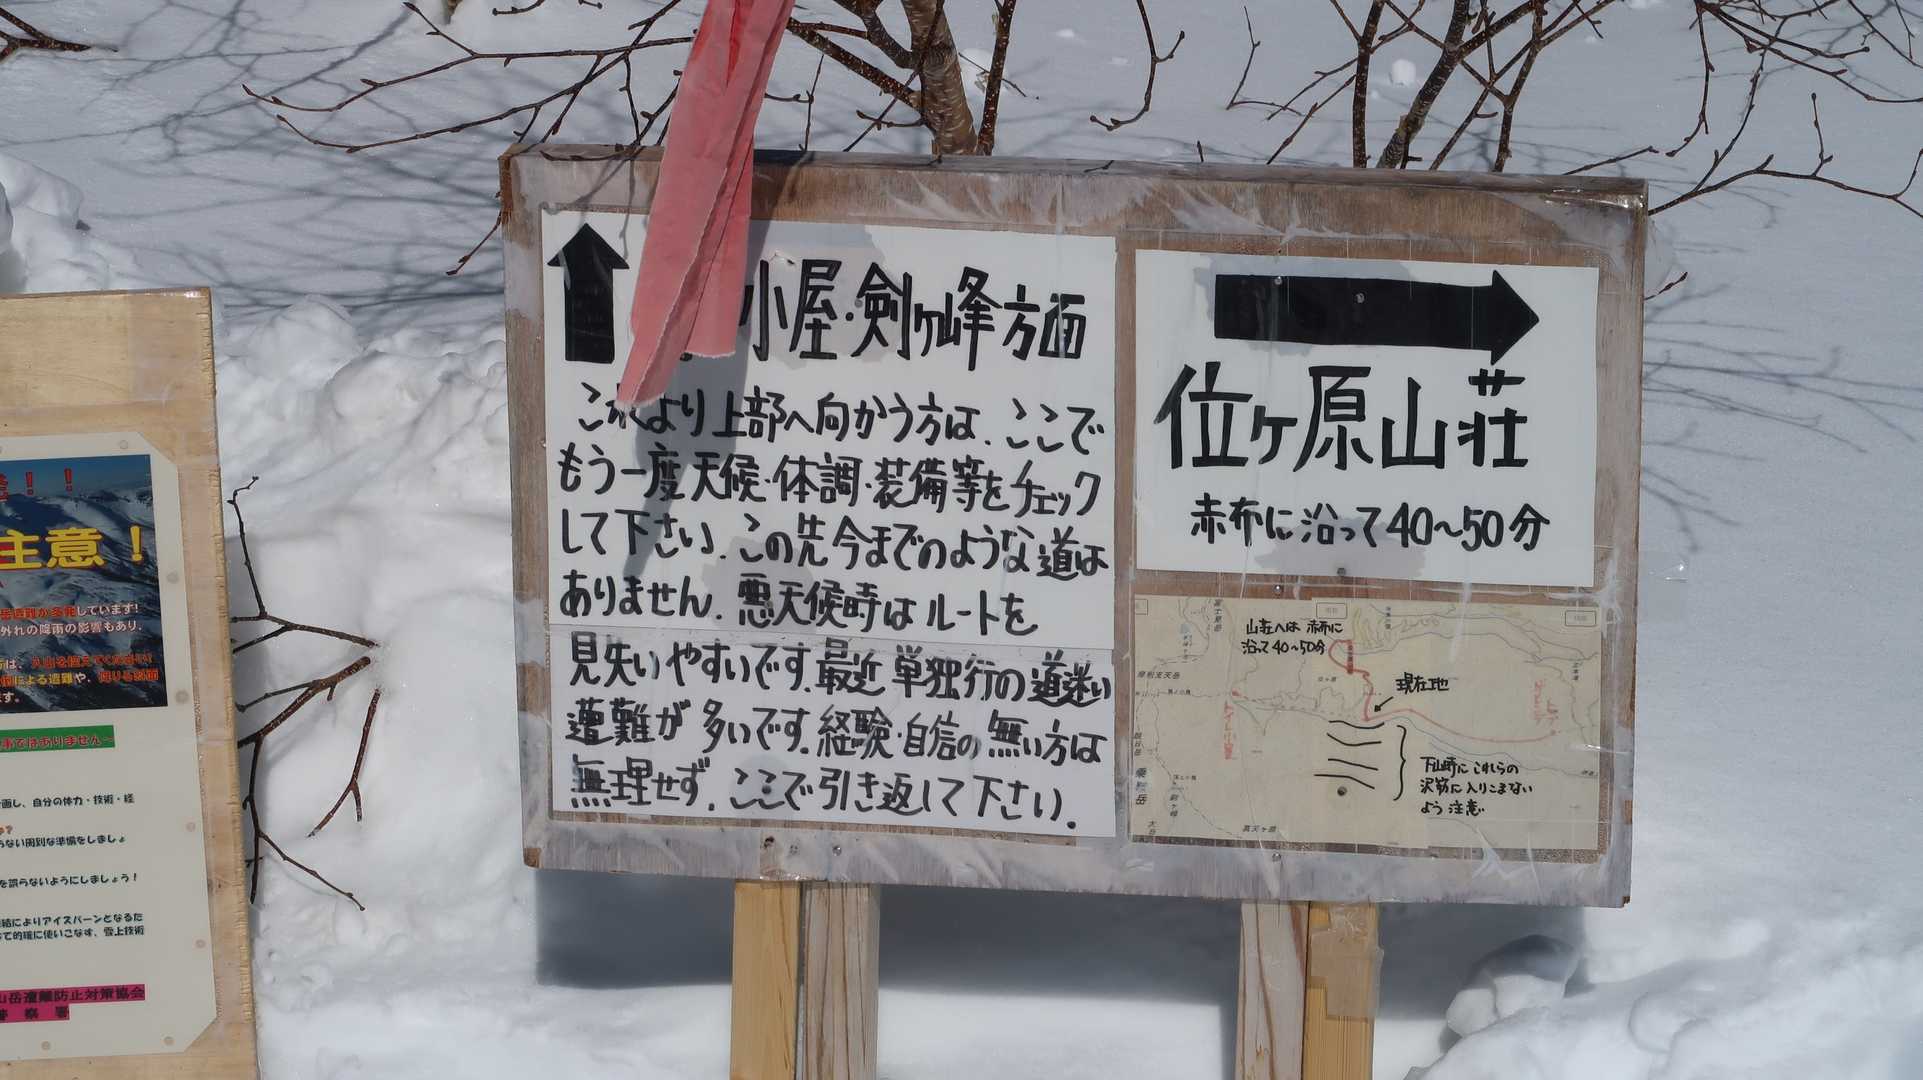 小屋・剣ヶ峰方面
これより上部へ向かう方は、ここで
もう一度天候・体調・装備等をチェック
して下さい。この先今までのような道は
ありません。悪天候時はルートを
見失いやすいです。最近単独行の道迷い
遭難が多いです。経験・自信の無い方は
無理せず、ここで引き返して下さい。
位ヶ原山荘
赤布に沿って40〜50分
山荘へは赤布に
沿って40〜50分
現在地
下山時にこれらの
沢筋に入りこまない
よう注意
トイレ小屋
富士見岳
摩利支天岳
乗鞍岳
高天ヶ原
大日
！！
主意！
しています!
外れの降雨の影響もあり、
による遭難や、
事ではありません〜
画し、自分の体力・技術・経
ない周到な準備をしましょ
を誤らないようにしましょう！
結によりアイスバーンとなるた
て的確に使いこなす、雪上技術
山岳遭難防止対策協会
警察署